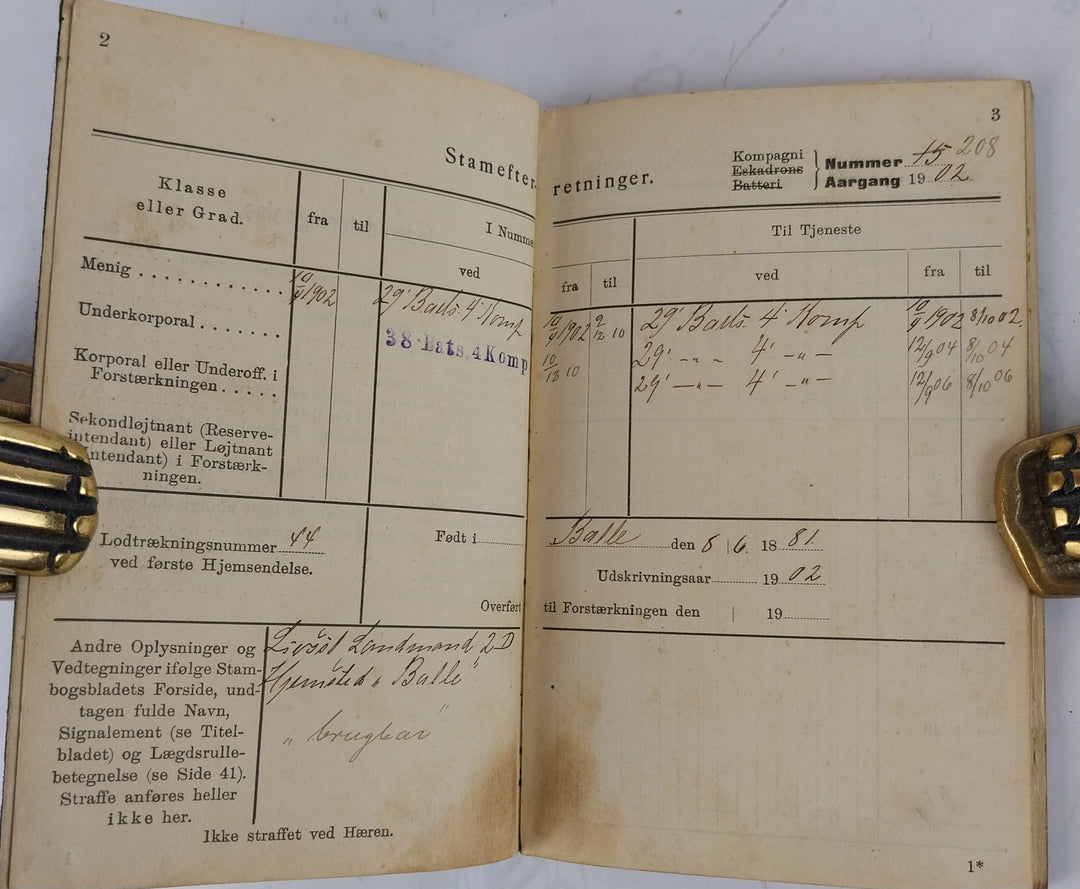 2
Stamefter-
Klasse
eller Grad.
fra
til
I Numme
ved
Menig
10/9 1902
29' Batls. 4' Komp
Underkorporal
38. Bats. 4 Komp
Korporal eller Underoff. i
Forstærkningen
Sekondløjtnant (Reserve-
intendant) eller Løjtnant
(Intendant) i Forstærk-
ningen.
Lodtrækningsnummer 44
ved første Hjemsendelse.
Født i
Overført
Andre Oplysninger og
Vedtegninger ifølge Stam-
bogsbladets Forside, und-
tagen fulde Navn,
Signalement (se Titel-
bladet) og Lægdsrulle-
betegnelse (se Side 41).
Straffe anføres heller
ikke her.
Landmand 2 D
Hjemsted „ Balle "
„ brugbar "
Ikke straffet ved Hæren.
3
retninger.
Kompagni
Eskadrons
Batteri
Nummer 15 208
Aargang 1902
Til Tjeneste
fra
til
ved
fra
til
10/9 1902 9/12 10 29' Batls. 4' Komp 10/9 1902 8/10 02.
10/13 10 29' -„- 4' -„- 12/9 04 8/10 04
29' -„- 4' -„- 12/9 06 8/10 06
Balle den 8/6. 1881.
Udskrivningsaar 1902
til Forstærkningen den | 19
1*